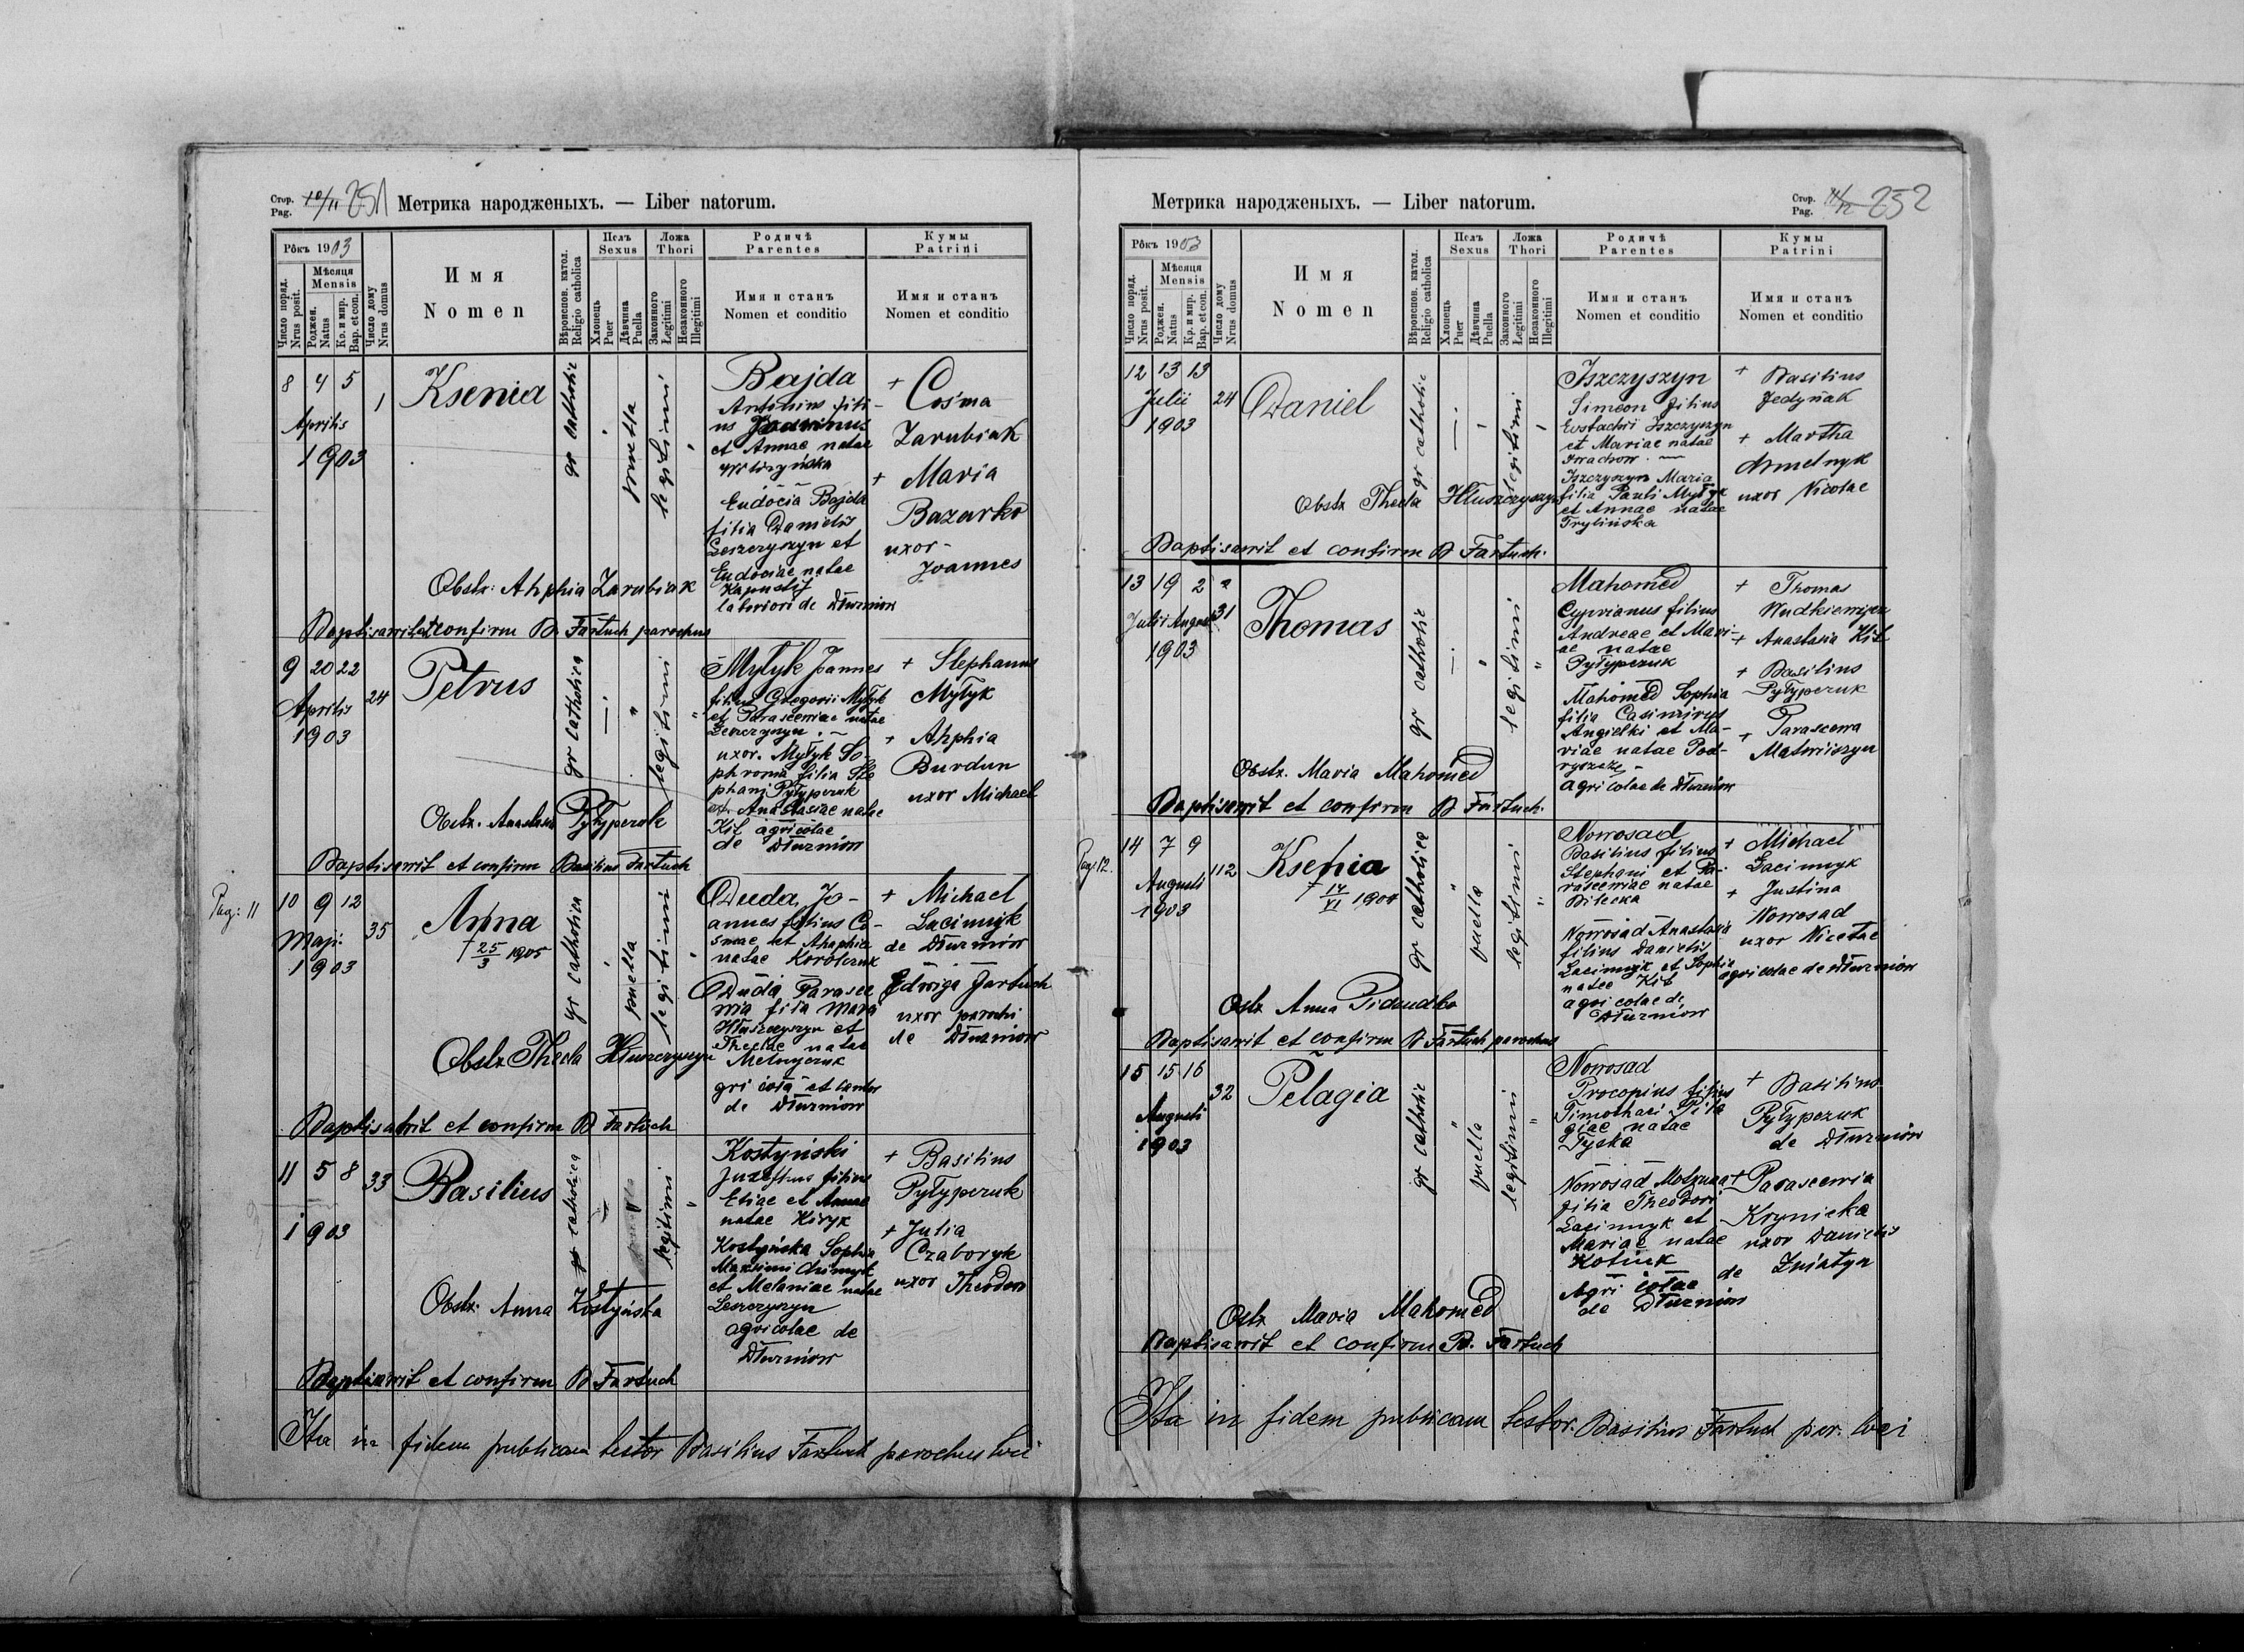 Стор.
Pag.
10/11 251
Метрика народженыхъ. — Liber natorum.
Рôкъ 1903
Число поряд.
Nrus posit.
Мѣсяця
Mensis
Роджен.
Natus
Кр. и мир.
Bap. et con.
Число дому
Nrus domus
Имя
Nomen
Вѣроиспов. катол.
Religio catholica
Полъ
Sexus
Хлопець
Puer
Дѣвчина
Puella
Ложа
Thori
Законного
Legitimi
Незаконного
Illegitimi
Родичѣ
Parentes
Имя и станъ
Nomen et conditio
Кумы
Patrini
Имя и станъ
Nomen et conditio
8 4 5
Aprilis
1903
1
Ksenia
gr catholic
puella
legitimi
Bajda
Antonius fili-
us
et Annae natae
Eudocia Bajda
filia Danielis
Leszczyszyn et
Eudociae natae
Kapustij
de Dłużniow
+ Cosma
Zarubiak
+ Maria
Bazarko
uxor -
Joannes
Obstr: Ahphia Zarubiak
Baptisavit et confirm B Fartuch parochus
9 20 22
Aprilis
1903
24
Petrus
gr catholica
legitimi
Mytyk Joannes
filius Gregorii Mytyk
et Parasceviae natae
Leszczyszyn . ~
uxor. Mytyk So-
phronia filia Ste
phani Pyłypczuk
et Anastasiae natae
Kit agricolae
de Dłużniow
+ Stephanus
Mytyk
+ Ahphia
Burdun
uxor Michael
Obstr. Anastasia Pyłypczuk
Baptisavit et confirm Basilius Fartuch
Pag: 11
10 9 12
Maji
1903
35
Anna
+ 25/3 1905
gr catholica
puella
legitimi
Duda, Jo-
annes filius Co-
smae et Ahaphia
natae Korolczuk
Duda Parasce
via filia
Hłuszczyszyn et
Theclae natae
Melnyczuk
de Dłużniow
+ Michael
Lacinnyk
de Dłużniow
Edwiga Fartuch
uxor parochi
de Dłużniow
Obstr Thecla Hłuszczyszyn
Baptisavit et confirm B Fartuch
11 5 8
1903
33
Basilius
gr catholica
legitimi
Kostyński
Juzefus filius
Eliae et Annae
natae Kiryk
Kostyńska Sophia
et Melaniae natae
Leszczyszyn
agricolae de
Dłużniow
+ Basilius
Pyłypczuk
+ Julia
Czaboryk
uxor Theodori
Obstr. Anna Kostyńska
Baptisavit et confirm B Fartuch
Ita in fidem publicam testor Basilius Fartuch parochus loci
Метрика народженыхъ. — Liber natorum.
Стор.
Pag.
11/12 252
Рôкъ 1903
Число поряд.
Nrus posit.
Мѣсяця
Mensis
Роджен.
Natus
Кр. и мир.
Bap. et con.
Число дому
Nrus domus
Имя
Nomen
Вѣроиспов. катол.
Religio catholica
Полъ
Sexus
Хлопець
Puer
Дѣвчина
Puella
Ложа
Thori
Законного
Legitimi
Незаконного
Illegitimi
Родичѣ
Parentes
Имя и станъ
Nomen et conditio
Кумы
Patrini
Имя и станъ
Nomen et conditio
12 13 13
Julii
1903
24
Daniel
gr catholic
legitimi
Iszczyszyn
Simeon filius
Eustachii Iszczyszyn
et Mariae natae
Iszczyszyn Maria
filia Pauli Mytyk
et Annae natae
Trylińska
+ Basilius
Jedynak
+ Martha
Chmelnyk
uxor Nicolae
Obstr Thecla Hłuszczyszyn
Baptisavit et confirm B Fartuch
13 19 2
Julii Augusti
1903
31
Thomas
gr catholic
legitimi
Mahomed
Cyprianus filius
Andreae et Mari-
ae natae
Pyłypczuk
Mahomed Sophia
filia Casimirus
Angielki et Ma-
riae natae Pod-
agricolae de Dłużniow
+ Thomas
+ Anastasia Kit
+ Basilius
Pyłypczuk
+ Parascewa
Matwiiszyn
Obstr. Maria Mahomed
Baptisavit et confirm B Fartuch
Pag 12.
14 7 9
Augusti
1903
112
Ksenia
+ 14/VI 1904
gr catholica
puella
legitimi
Nowosad
Basilius filius
Stephani et Pa-
rasceviae natae
Bilecka
Nowosad Anastasia
filius Danielis
Lacinnyk et Sophia
natae Kit
agricolae de
Dłużniow
+ Michael
Lacinnyk
+ Justina
Nowosad
uxor Nicetae
agricolae de Dłużniow
Obstr Anna
Baptisavit et confirm B Fartuch parochus
15 15 16
Augusti
1903
32
Pelagia
gr catholic
puella
legitimi
Nowosad
Procopius filius
Timothaei Pela
giae natae
Tyska
Nowosad Motruna
filia Theodori
Lacinnyk et
Mariae natae
Kotiuk
Agricolae
de Dłużniow
+ Basilius
Pyłypczuk
de Dłużniow
+ Parascewia
Krynicka
uxor Danielis
de Żniatyn
Obstr Maria Mahomed
Baptisavit et confirm B. Fartuch
Ita in fidem publicam testor. Basilius Fartuch par. loci